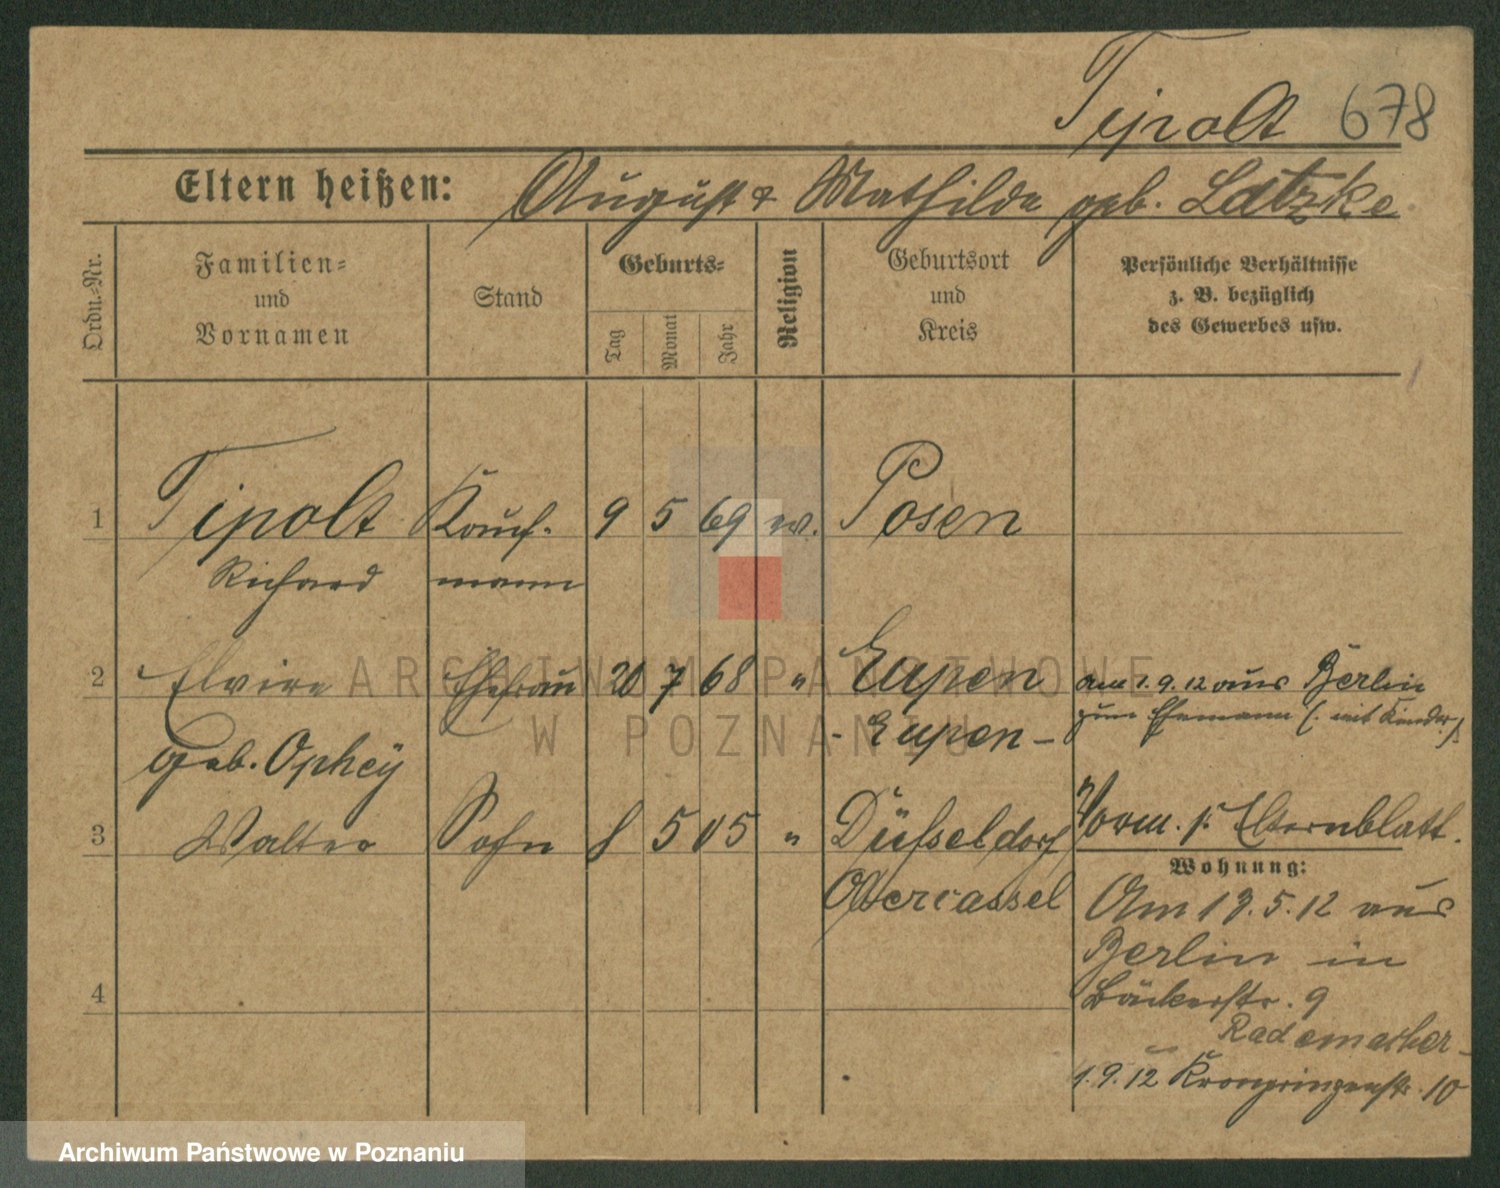 Tipolt 678
Eltern heißen: August & Mathilde geb. Latzke
Ordn.-Nr.
Familien-
und
Vornamen
Stand
Geburts-
Tag
Monat
Jahr
Religion
Geburtsort
und
Kreis
Persönliche Verhältnisse
z. B. bezüglich
des Gewerbes usw.
1 Tipolt Kauf- 9 5 69 ev. Posen
Richard mann
2 Elvire Ehefrau 20 7 68 " Eupen am 1.9.12 aus Berlin
zum Ehemann (: mit Kinder :)
geb. Ophey - Eupen -
3 Walter Sohn 8 5 05 " Düsseldorf Vorm. s. Elternblatt.
Obercassel
Wohnung:
Am 13.5.12 aus
Berlin in
4 Bäckerstr. 9
Rademacher
1.9.12 Kronprinzenstr. 10
ARCHIWUM PAŃSTWOWE
W POZNANIU
Archiwum Państwowe w Poznaniu